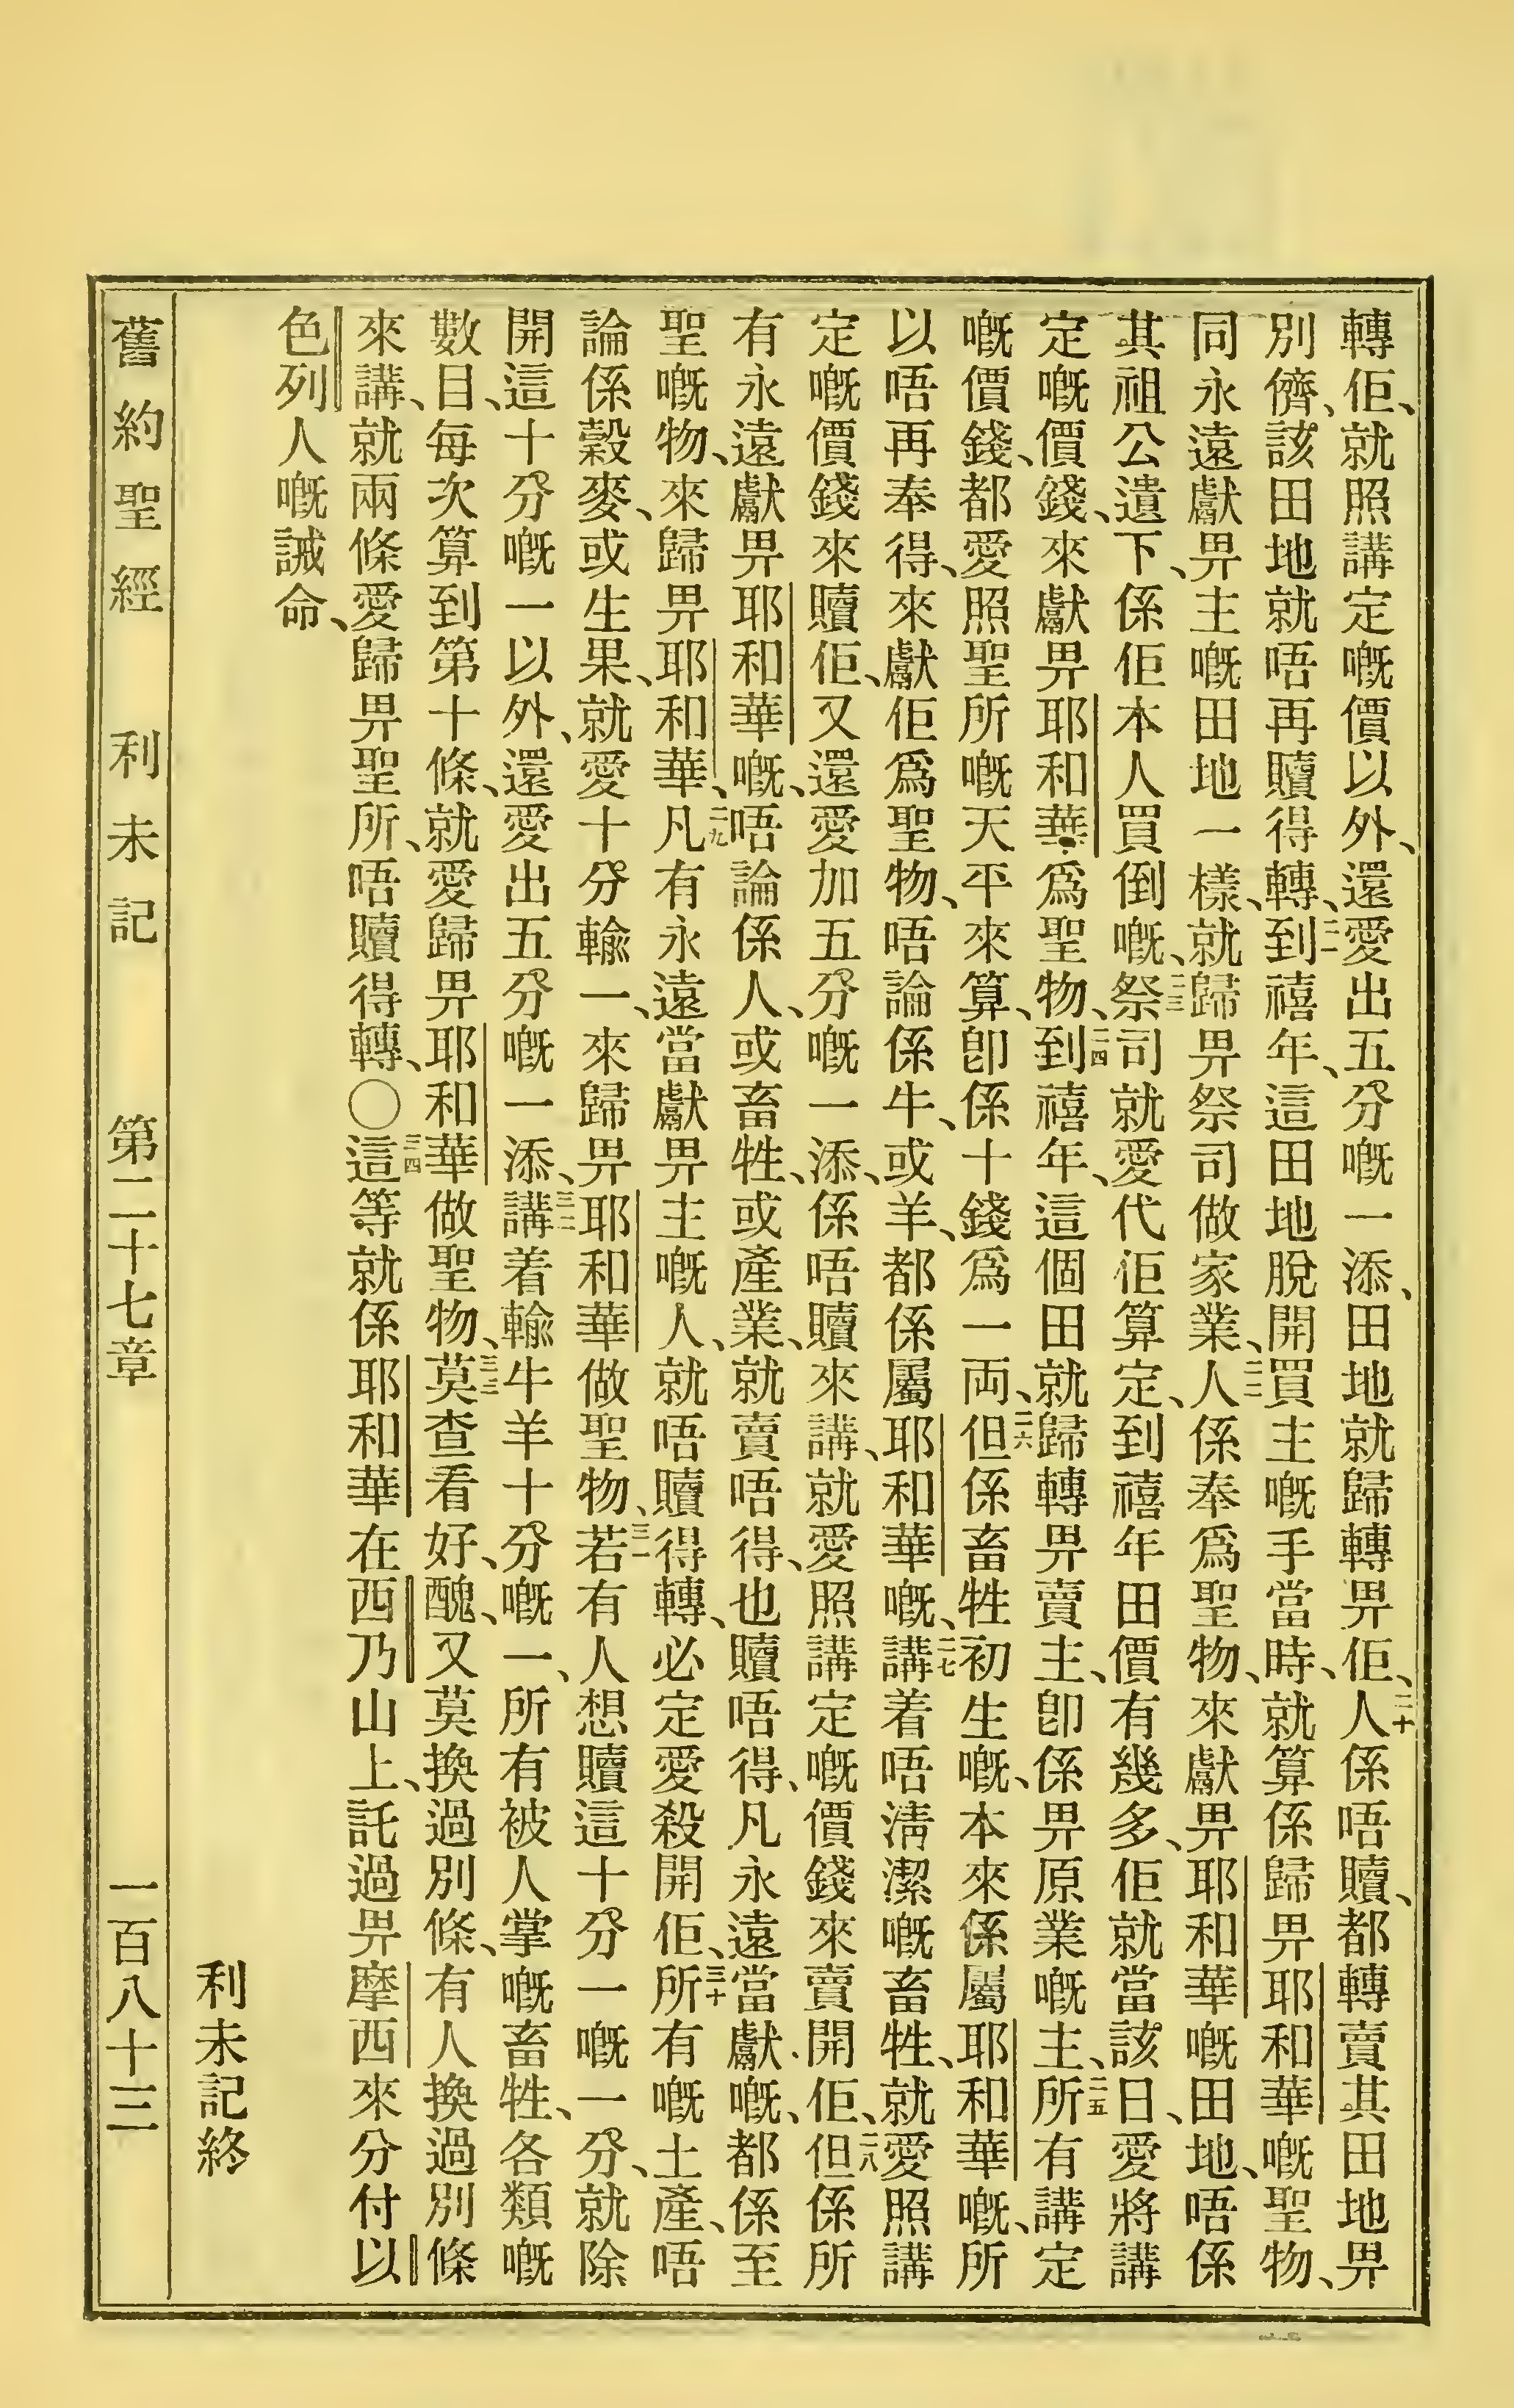 轉佢、就照講定嘅價以外、還愛出五分嘅一添、田地就歸轉畀佢、二十人係唔贖、都轉賣其田地畀
別儕、該田地就唔再贖得轉、二一到禧年、這田地脫開買主嘅手當時、就算係歸畀耶和華嘅聖物、
同永遠獻畀主嘅田地一樣、就歸畀祭司做家業、二二人係奉爲聖物、來獻畀耶和華嘅田地、唔係
其祖公遺下、係佢本人買倒嘅、二三祭司就愛代佢算定、到禧年田價有幾多、佢就當該日、愛將講
定嘅價錢、來獻畀耶和華爲聖物、二四到禧年、這個田就歸轉畀賣主、卽係畀原業嘅主、二五所有講定
嘅價錢、都愛照聖所嘅天平來算、卽係十錢爲一両、二六但係畜牲初生嘅、本來係屬耶和華嘅、所
以唔再奉得、來獻佢爲聖物、唔論係牛、或羊、都係屬耶和華嘅、二七講着唔淸潔嘅畜牲、就愛照講
定嘅價錢來贖佢、又還愛加五分嘅一添、係唔贖來講、就愛照講定嘅價錢來賣開佢、二八但係所
有永遠獻畀耶和華嘅、唔論係人、或畜牲、或產業、就賣唔得、也贖唔得、凡永遠當獻嘅、都係至
聖嘅物、來歸畀耶和華、二九凡有永遠當獻畀主嘅人、就唔贖得轉、必定愛殺開佢、三十所有嘅土產、唔
論係穀麥、或生果、就愛十分輸一、來歸畀耶和華做聖物、三一若有人想贖這十分一嘅一分、就除
開這十分嘅一以外、還愛出五分嘅一添、三二講着輸牛羊十分嘅一、所有被人掌嘅畜牲、各類嘅
數目、每次算到第十條、就愛歸畀耶和華做聖物、三三莫查看好、醜、又莫換過別條、有人換過別條
來講、就兩條愛歸畀聖所、唔贖得轉、〇三四這等就係耶和華在西乃山上、託過畀摩西來分付以
色列人嘅誡命、
利未記終
舊約聖經 利未記 第二十七章 一百八十三